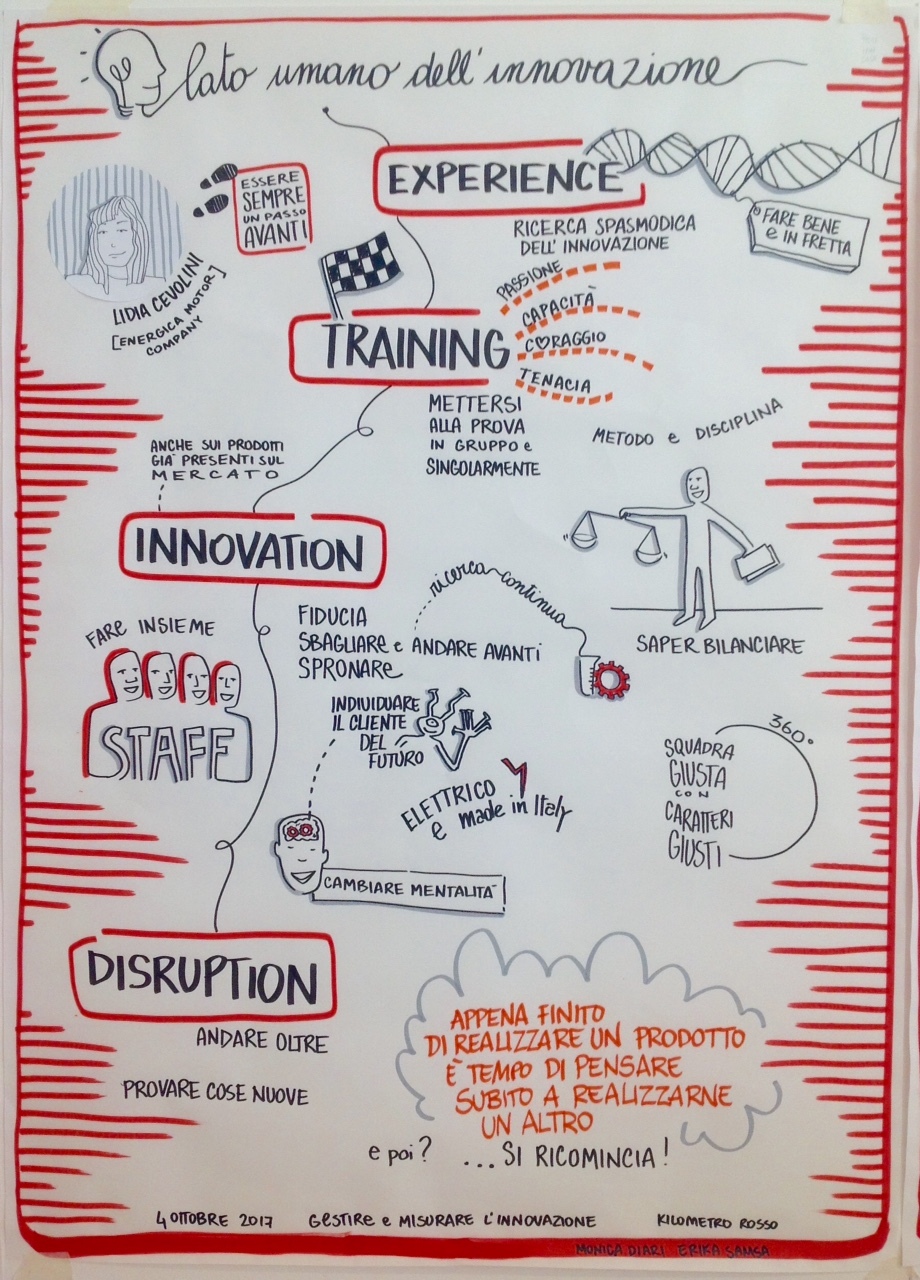 lato umano dell'innovazione
EXPERIENCE
ESSERE
SEMPRE
UN PASSO
AVANTI
LIDIA CEVOLINI
[ENERGICA MOTOR]
COMPANY
FARE BENE
e IN FRETTA
RICERCA SPASMODICA
DELL'INNOVAZIONE
PASSIONE
CAPACITÀ
CORAGGIO
TENACIA
TRAINING
METTERSI
ALLA PROVA
IN GRUPPO e
SINGOLARMENTE
METODO e DISCIPLINA
SAPER BILANCIARE
ANCHE SUI PRODOTTI
GIA' PRESENTI SUL
MERCATO
INNOVATION
ricerca continua
FARE INSIEME
STAFF
FIDUCIA
SBAGLIARE e ANDARE AVANTI
SPRONARE
INDIVIDUARE
IL CLIENTE
DEL
FUTURO
ELETTRICO
e made in Italy
360°
SQUADRA
GIUSTA
CON
CARATTERI
GIUSTI
CAMBIARE MENTALITA'
DISRUPTION
ANDARE OLTRE
PROVARE COSE NUOVE
APPENA FINITO
DI REALIZZARE UN PRODOTTO
È TEMPO DI PENSARE
SUBITO A REALIZZARNE
UN ALTRO
e poi? ...SI RICOMINCIA!
4 OTTOBRE 2017 GESTIRE e MISURARE L'INNOVAZIONE KILOMETRO ROSSO
MONICA DIARI ERIKA SAMSA